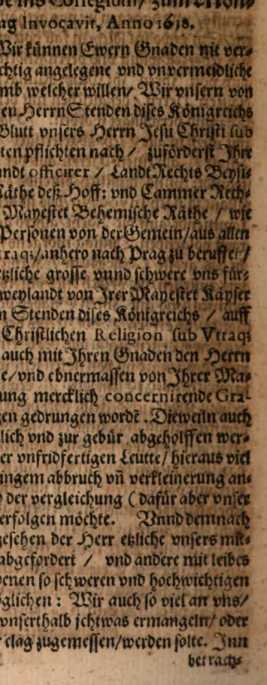 Collegium/ zum
ag Invocavit, Anno 1618.
Wir künnen Ewern Gnaden nit ver-
chtig angelegene vnd vnvermeidliche
mb welcher willen/ Wir vnsern von
eu Herrn Stenden dises Königreichs
Blutt vnsers Herrn Jesu Christi sub
tenpflichten nach/ zuförderst Ihre
andt officirer/ Landt Rechts Beysi-
Räthe deß Hoff: vnd Cammer Rech-
Mayestet Behemische Räthe/ wie
Personen von der Gemein/aus allen
raq;/anhero nach Prag zu beruffen/
tzliche grosse vnnd schwere vns für-
weylandt von Irer Mayestet Käyser
n Stenden dises Königreichs/ auff
Christlichen Religion sub Vtraq;
auch mit Ihren Gnaden den Herrn
e/vnd ebnermassen von Ihrer Ma-
ung mercklich concernirende Gra-
gen gedrungen wordē. Dieweiln auch
lich vnd zur gebür abgeholffen wer-
er vnfridfertigen Leutte/ hieraus viel
ingem abbruch vñ verkleinerung an-
der vergleichung (dafür aber vnser
erfolgen möchte. Vnnd demnach
gesehen der Herr etzliche vnsers mit-
abgefordert/ vnd andere mit leibes
enen so schweren vnd hochwichtigen
glichen: Wir auch so viel an vns/
vnserthalb ichtwas ermangeln/ oder
clag zugemessen/werden solte. Inn
betrach-